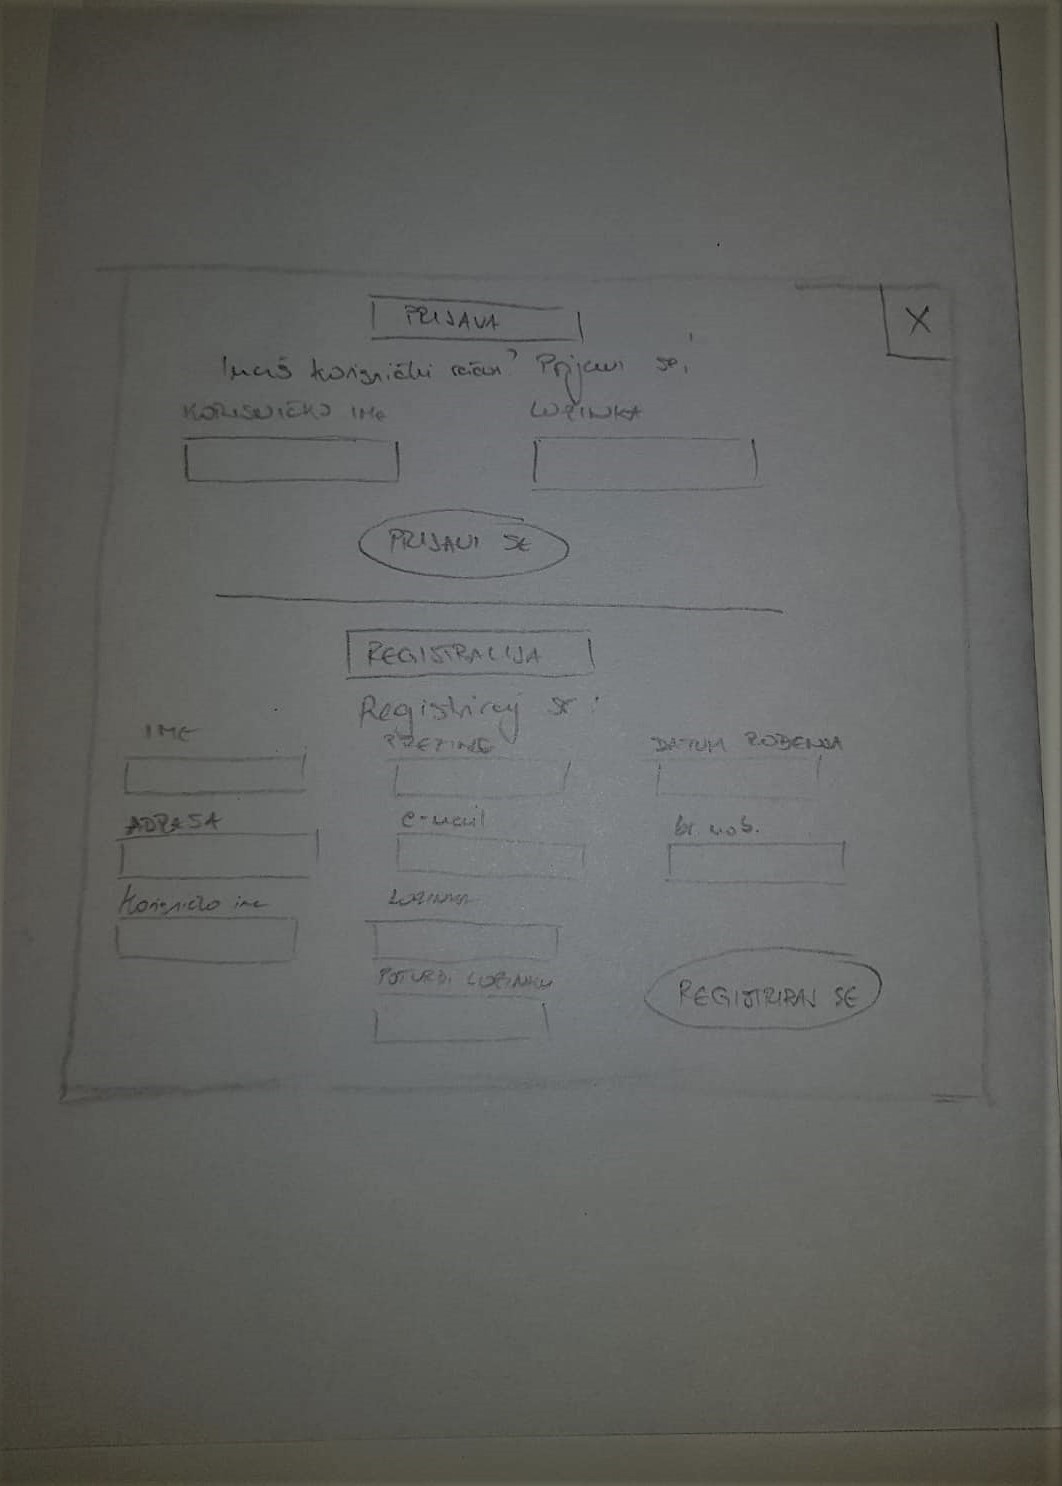 PRIJAVA
X
Imaš korisnički račun? Prijavi se!
KORISNIČKO IME LOZINKA
PRIJAVI SE
REGISTRACIJA
Registriraj se!
IME PREZIME DATUM ROĐENJA
ADRESA e-mail br. mob.
Korisničko ime LOZINKA
POTVRDI LOZINKU
REGISTRIRAJ SE